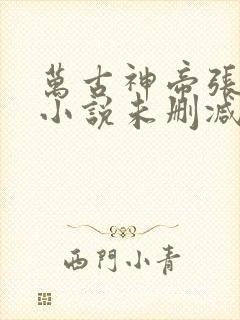 萬古神帝張
小說未刪減
西門小青